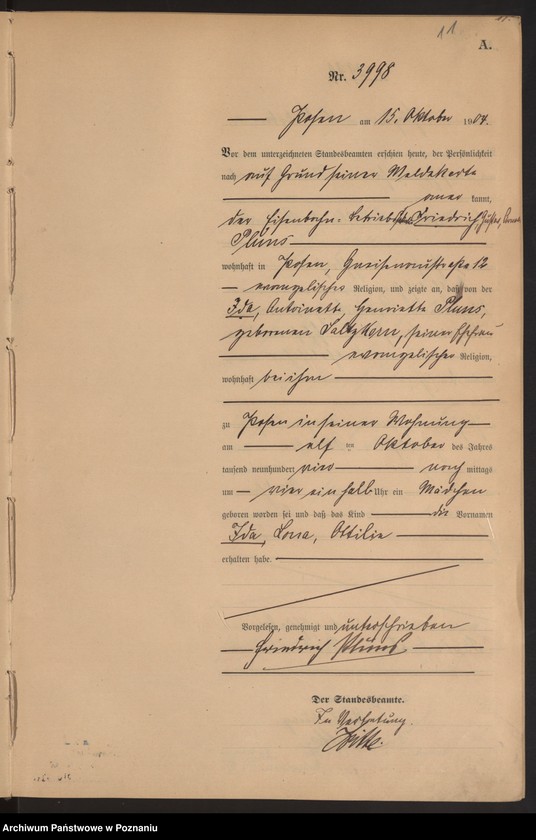 11
A.
Nr. 3998
Posen am 15. Oktober 1904.
Vor dem unterzeichneten Standesbeamten erschien heute, der Persönlichkeit
nach auf Grund seiner Meldekarte
aner kannt,
der Eisenbahn-Betriebs Friedrich, Gustav,
Pluns
wohnhaft in Posen, Gneisenaustraße 12
evangelischer Religion, und zeigte an, daß von der
Ida, Antoinette, Henriette Pluns,
geborenen Saltzkorn, seiner Ehefrau
evangelischer Religion,
wohnhaft bei ihm
zu Posen in seiner Wohnung
am elf ten Oktober des Jahres
tausend neunhundert vier nach mittags
um vier ein halb Uhr ein Mädchen
geboren worden sei und daß das Kind die Vornamen
Ida, Lona, Ottilie
erhalten habe.
Vorgelesen, genehmigt und unterschrieben
Friedrich Pluns
Der Standesbeamte.
In Vertretung.
Witte.
Archiwum Państwowe w Poznaniu